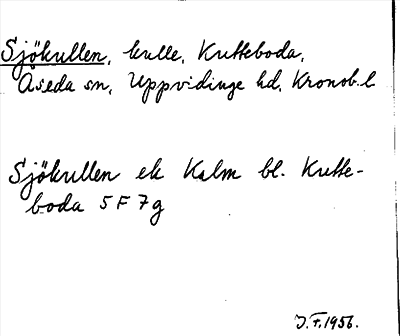 Sjökullen, kulle, Kutteboda,
Åseda sn, Uppvidinge hd, Kronob. l.
Sjökullen ek Kalm bl. Kutte-
boda 5 F 7 g
J.F. 1956.